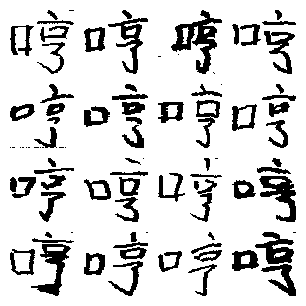 哼哼哼哼
哼哼哼哼
哼哼哼哼
哼哼哼哼